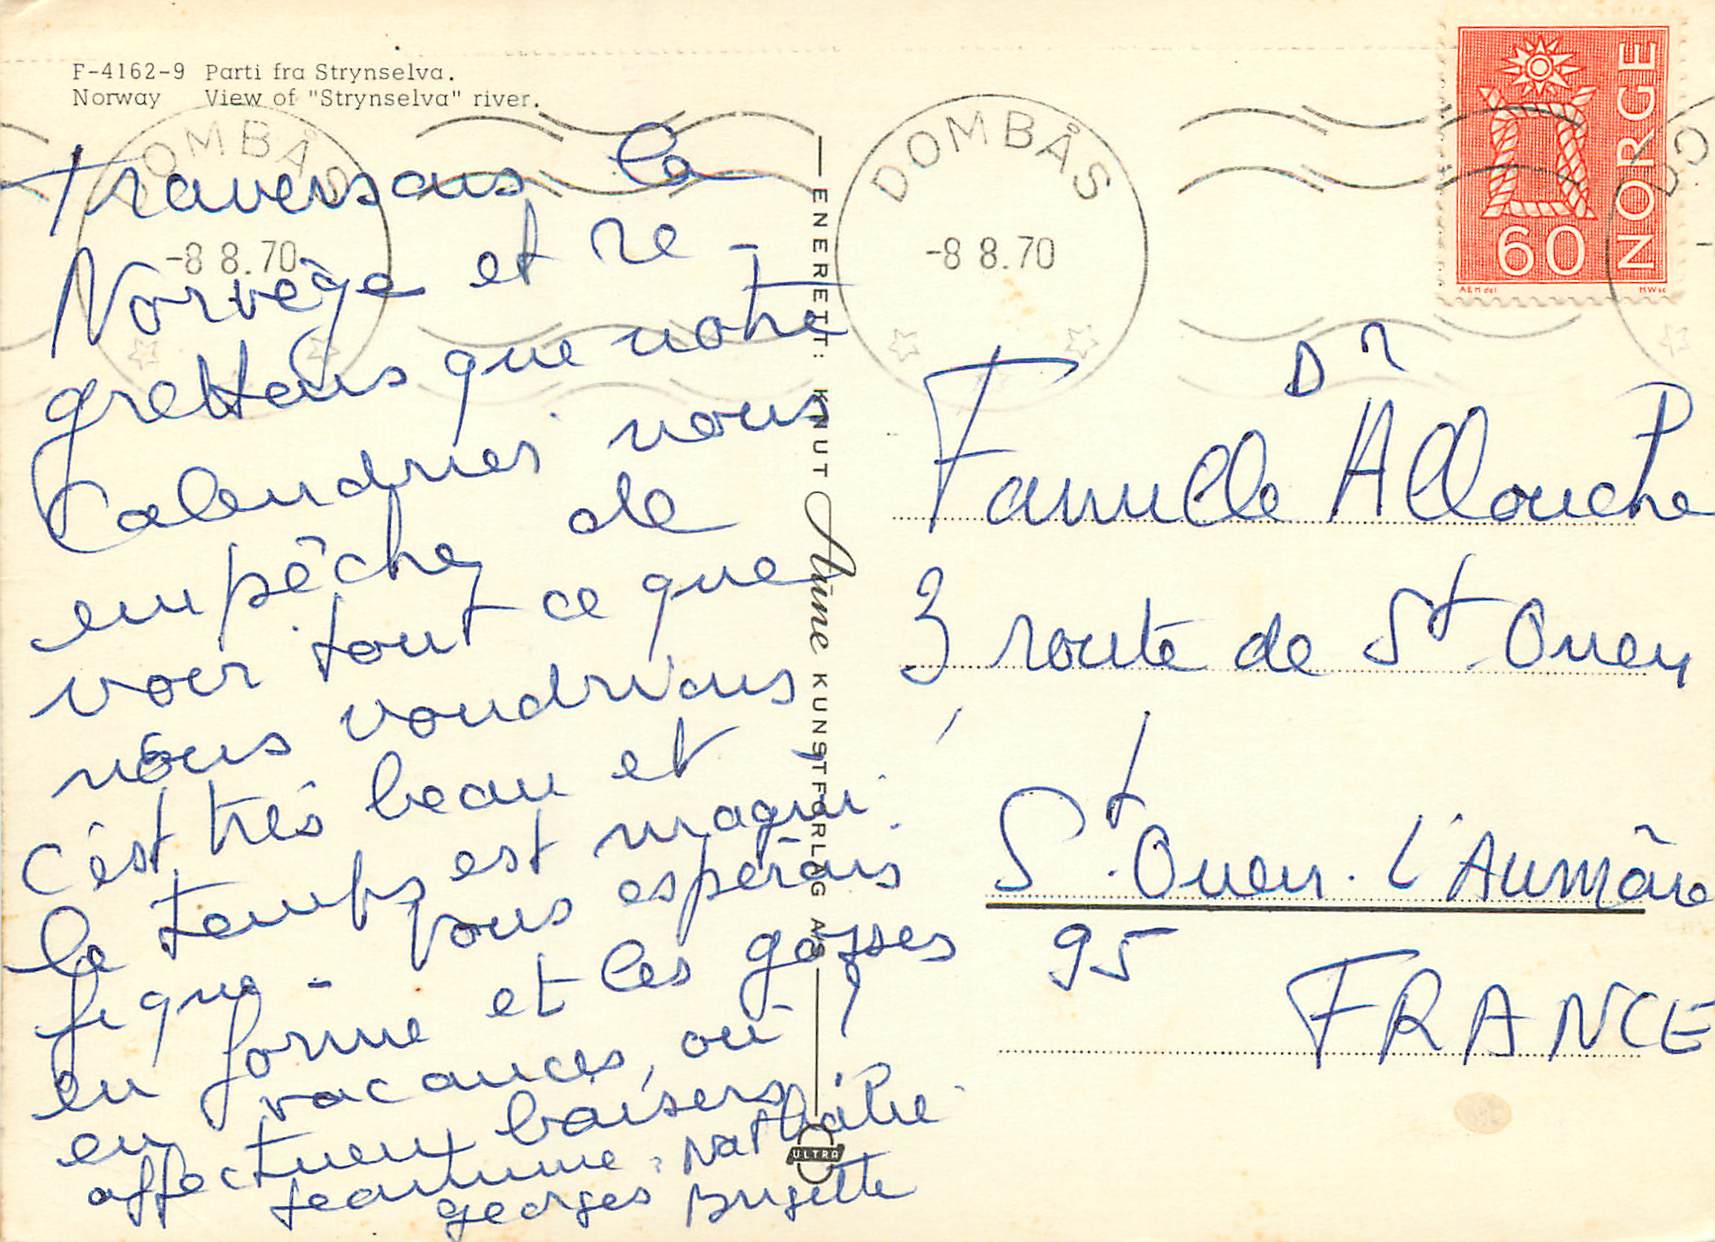 F-4162-9 Parti fra Strynselva.
Norway View of "Strynselva" river.
DOMBÅS
-8 8.70
DOMBÅS
-8 8.70
NORGE
60
traversons la
Norvège et re-
grettons que notre
Calendrier nous
empêche de
voir tout ce que
nous voudrions
c'est très beau et
le temps est magni-
fique - vous espérons
en forme et les gosses
en vacances, où ?
affectueux baisers
Jeannine, Nathalie
Georges Brigitte
ENERETT: KNUT Aune KUNSTFORLAG A/S
ULTRA
Dr
Famille Allouche
3 route de St Ouen
St. Ouen. L'Aumône
95
FRANCE